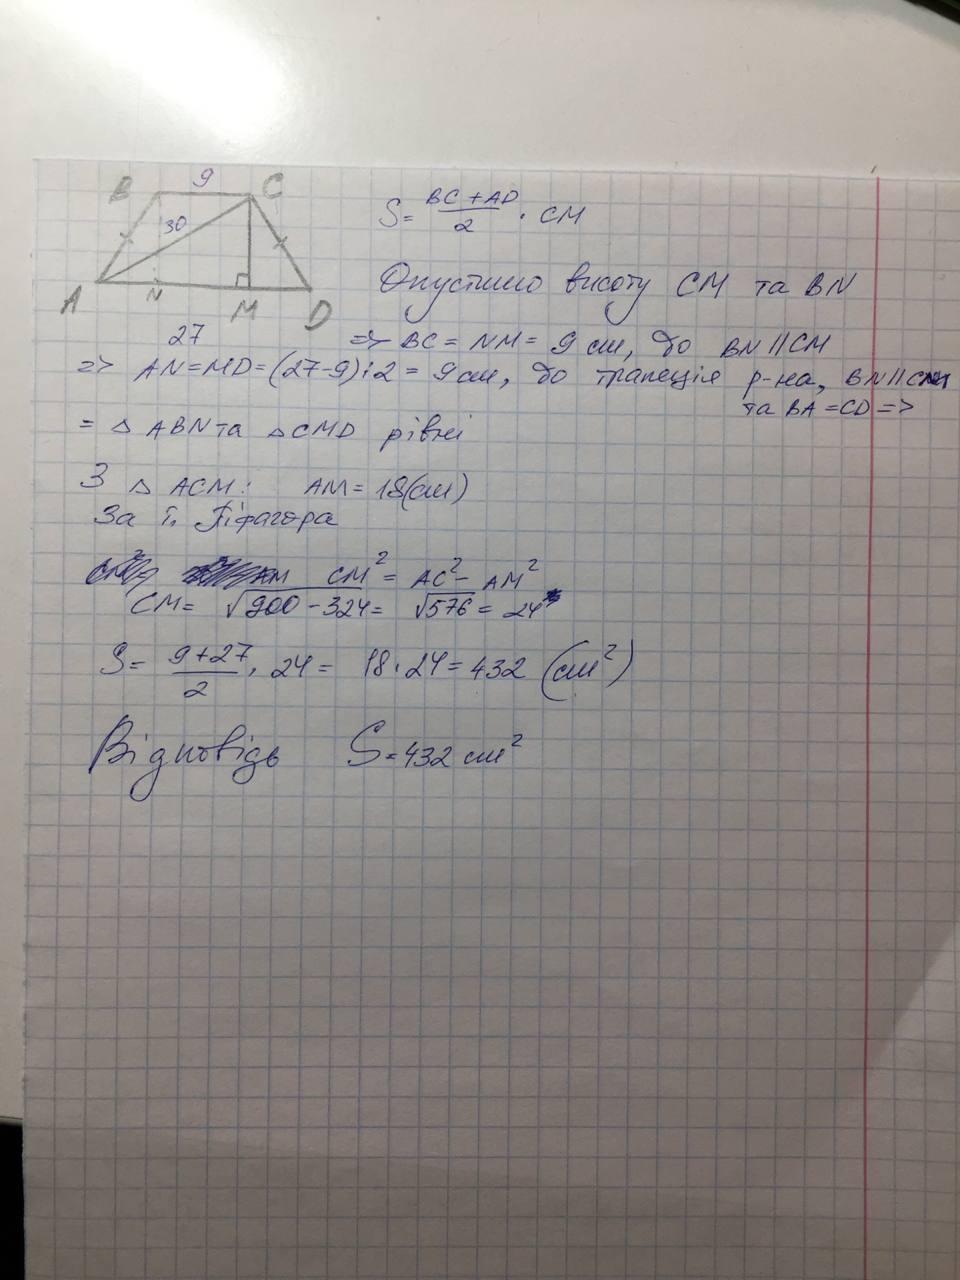 B 9 C
30
A N M D
27
S = (BC + AD)/2 · CM
Опустимо висоту CM та BN
=> BC = NM = 9 см, бо BN || CM
=> AN = MD = (27-9):2 = 9 см, бо трапеція р-на, BN || CM
та BA = CD =>
= △ ABN та △ CMD рівні
З △ ACM: AM = 18(см)
За т. Піфагора
CM² = AC² - AM²
CM = √900 - 324 = √576 = 24
S = (9+27)/2 · 24 = 18 · 24 = 432 (см²)
Відповідь S = 432 см²